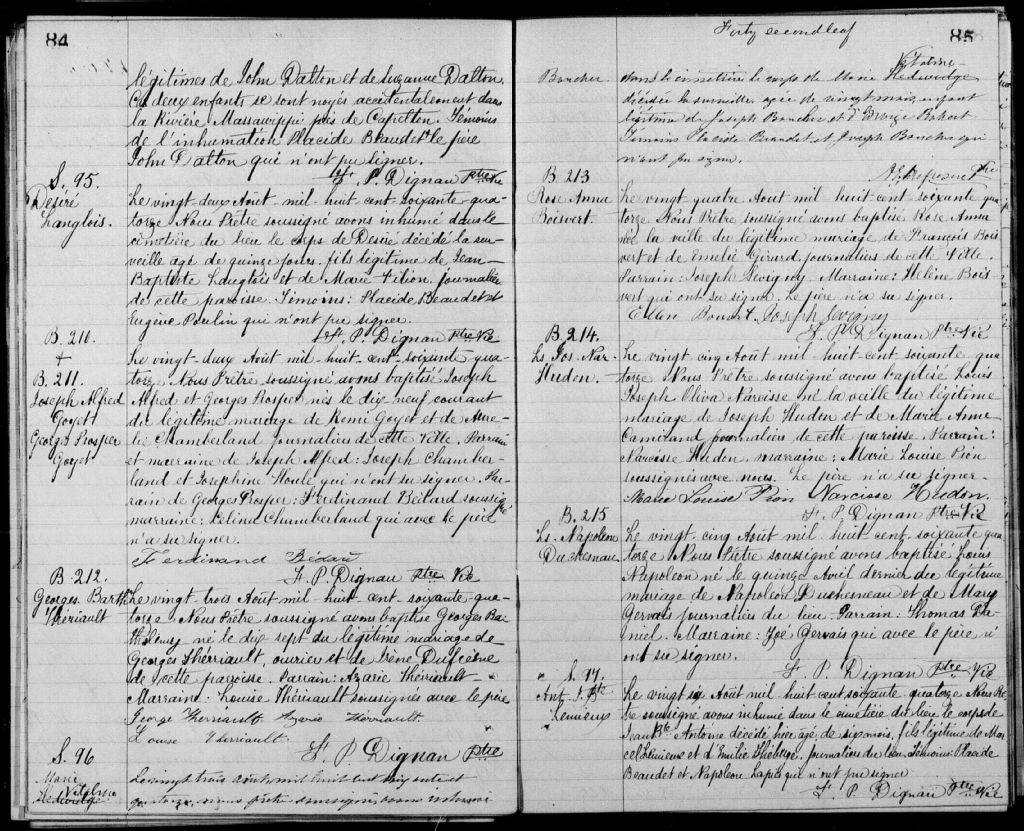 84
légitimes de John Dalton et de Suzanne Dalton.
Ces deux enfants se sont noyés accidentalement dans
la Rivière Massawippi près de Capelton. Témoins
de l'inhumation Placide Beaudet & le père
John Dalton qui n'ont pu signer.
F. P. Dignan Ptre Vic
S. 95.
Désiré
Langlois.
Le vingt deux Août mil-huit-cent-soixante-qua-
torze Nous Prêtre soussigné avons inhumé dans le
cimetière du lieu le corps de Désiré décédé la sur-
veille agé de quinze jours, fils légitime de Jean-
Baptiste Langlois et de Marie Fition journalier
de cette paroisse. Témoins: Placide Beaudet et
Eugène Poulin qui n'ont pu signer.
F. P. Dignan Ptre Vic
B. 210.
+
B. 211.
Joseph Alfred
Goyet
Georges Prosper
Goyet
Le vingt-deux Août mil-huit-cent-soixante-qua-
torze, Nous Prêtre soussigné avons baptisé Joseph
Alfred et Georges Prosper nés le dix neuf courant
du légitime mariage de Remi Goyet et de Aure-
lie Chamberland journalier de cette Ville. Parrain
et marraine de Joseph Alfred: Joseph Chamber-
land et Josephine Houle qui n'ont su signer. Par-
rain de Georges Prosper: Ferdinand Bédard soussigné
marraine: Celina Chamberland qui avec le père
n'a su signer.
Ferdinand Bédard
F. P. Dignan Ptre Vic
B. 212.
Georges Barth
Thériault
Le vingt-trois Août mil-huit-cent-soixante-qua-
torze Nous Prêtre soussigné avons baptisé Georges Ba-
thélemy né le dix sept du légitime mariage de
Georges Thérriault, ouvrier et de Irène Dufresne
de cette paroisse. Parrain: Azarie Thériault-
Marraine: Louise Thériault soussignés avec le père
George Therriault Azarie Therriault
Louise Therriault
F. P. Dignan Ptre
S. 96
Marie
Vitaline
Hedwidge
Le vingt trois août mil huit cent soixante et
quatorze, nous prêtre soussigné avons inhumé
Forty second leaf
85
Boucher
Vitaline
dans le cimetière le corps de Marie Hedwidge
décédée la surveille, agée de vingt mois, enfant
légitime de Joseph Boucher et d'
Témoins Placide Beaudet et Joseph Boucher qui
n'ont pu signer.
A. E. Dufresne Ptre
B. 213
Rose Anna
Boisvert.
Le vingt quatre Août mil huit cent soixante qua
torze Nous Prêtre soussigné avons baptisé Rose Anna
née la veille du légitime mariage de François Bois
vert et de Emélie Girard journaliers de cette Ville.
Parrain: Joseph Levigny Marraine: Helène Bois
vert qui ont su signer. Le père n'a su signer.
Ellen Joseph Levigny
F. P. Dignan Ptre Vic
B. 214.
Ls. Jos. Nar-
Hudon.
Le vingt cinq Août mil huit cent soixante qua
torze Nous Prêtre soussigné avons baptisé Louis
Joseph Oliva Narcisse né la veille du légitime
mariage de Joseph Hudon et de Marie Anne
Camerand journaliers de cette paroisse. Parrain:
Narcisse Hudon, marraine: Marie Louise Pion
soussignés avec nous. Le père n'a su signer-
Marie Louise Pion Narcisse Hudon.
F. P. Dignan Ptre Vic
B. 215
Ls. Napoléon
Duchesneau
Le vingt-cinq Août mil huit cent soixante qua
torze Nous Prêtre soussigné avons baptisé Louis
Napoléon né le quinze Avril dernier du légitime
mariage de Napoléon Duchesneau et de Mary
Gervais journaliers du lieu. Parrain: Thomas Ha-
mel. Marraine: Zoé Gervais qui avec le père n'
ont su signer.
F. P. Dignan Ptre Vic
S. 97
Ant. J. Bte
Lemieux
Le vingt six Août mil huit cent soixante quatorze Nous Prê
tre soussigné avons inhumé dans le cimetière du lieu le corps de
Jean Bte Antoine décédé hier âgé de six mois, fils légitime de Mar
cel Lemieux et d'Emilie Théberge, journaliers du lieu. Témoins Placide
Beaudet et Napoléon Lapré qui n'ont pu signer
F. P. Dignan Ptre Vic